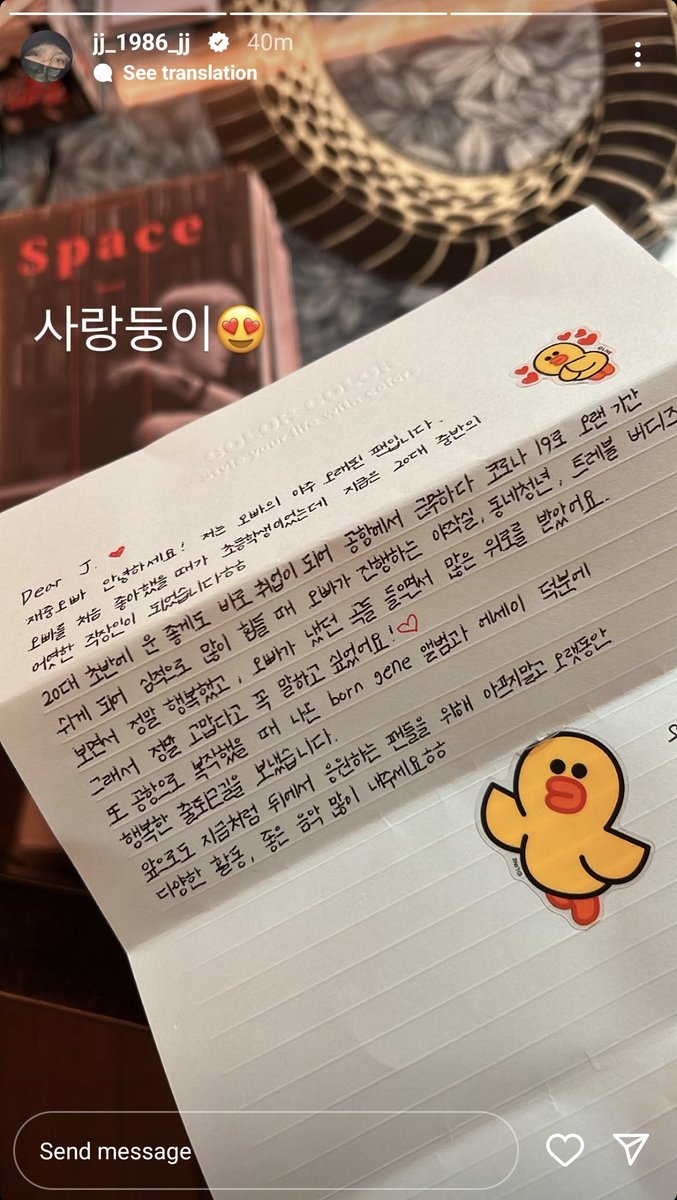 jj_1986_jj 40m
See translation
Space
사랑둥이😍
COLOR COLOR
Style your life with colors
Dear J. ♥
재중오빠 안녕하세요! 저는 오빠의 아주 오래된 팬입니다.
오빠를 처음 좋아했을 때가 초등학생이었는데 지금은 20대 중반의
어엿한 직장인이 되었습니다ㅎㅎ
20대 초반에 운 좋게도 바로 취업이 되어 공항에서 근무하다 코로나 19로 오랜 기간
쉬게 되어 심적으로 많이 힘들 때 오빠가 진행하는 야작실, 동네청년, 트레블 버디즈
보면서 정말 행복했고, 오빠가 냈던 곡들 들으면서 많은 위로를 받았어요.
그래서 정말 고맙다고 꼭 말하고 싶었어요!♡
또 공항으로 복직했을 때 나온 born gene 앨범과 에세이 덕분에
행복한 출퇴근길을 보냈습니다.
앞으로도 지금처럼 뒤에서 응원하는 팬들을 위해 아프지말고 오랫동안
다양한 활동, 좋은 음악 많이 내주세요ㅎㅎ
Send message